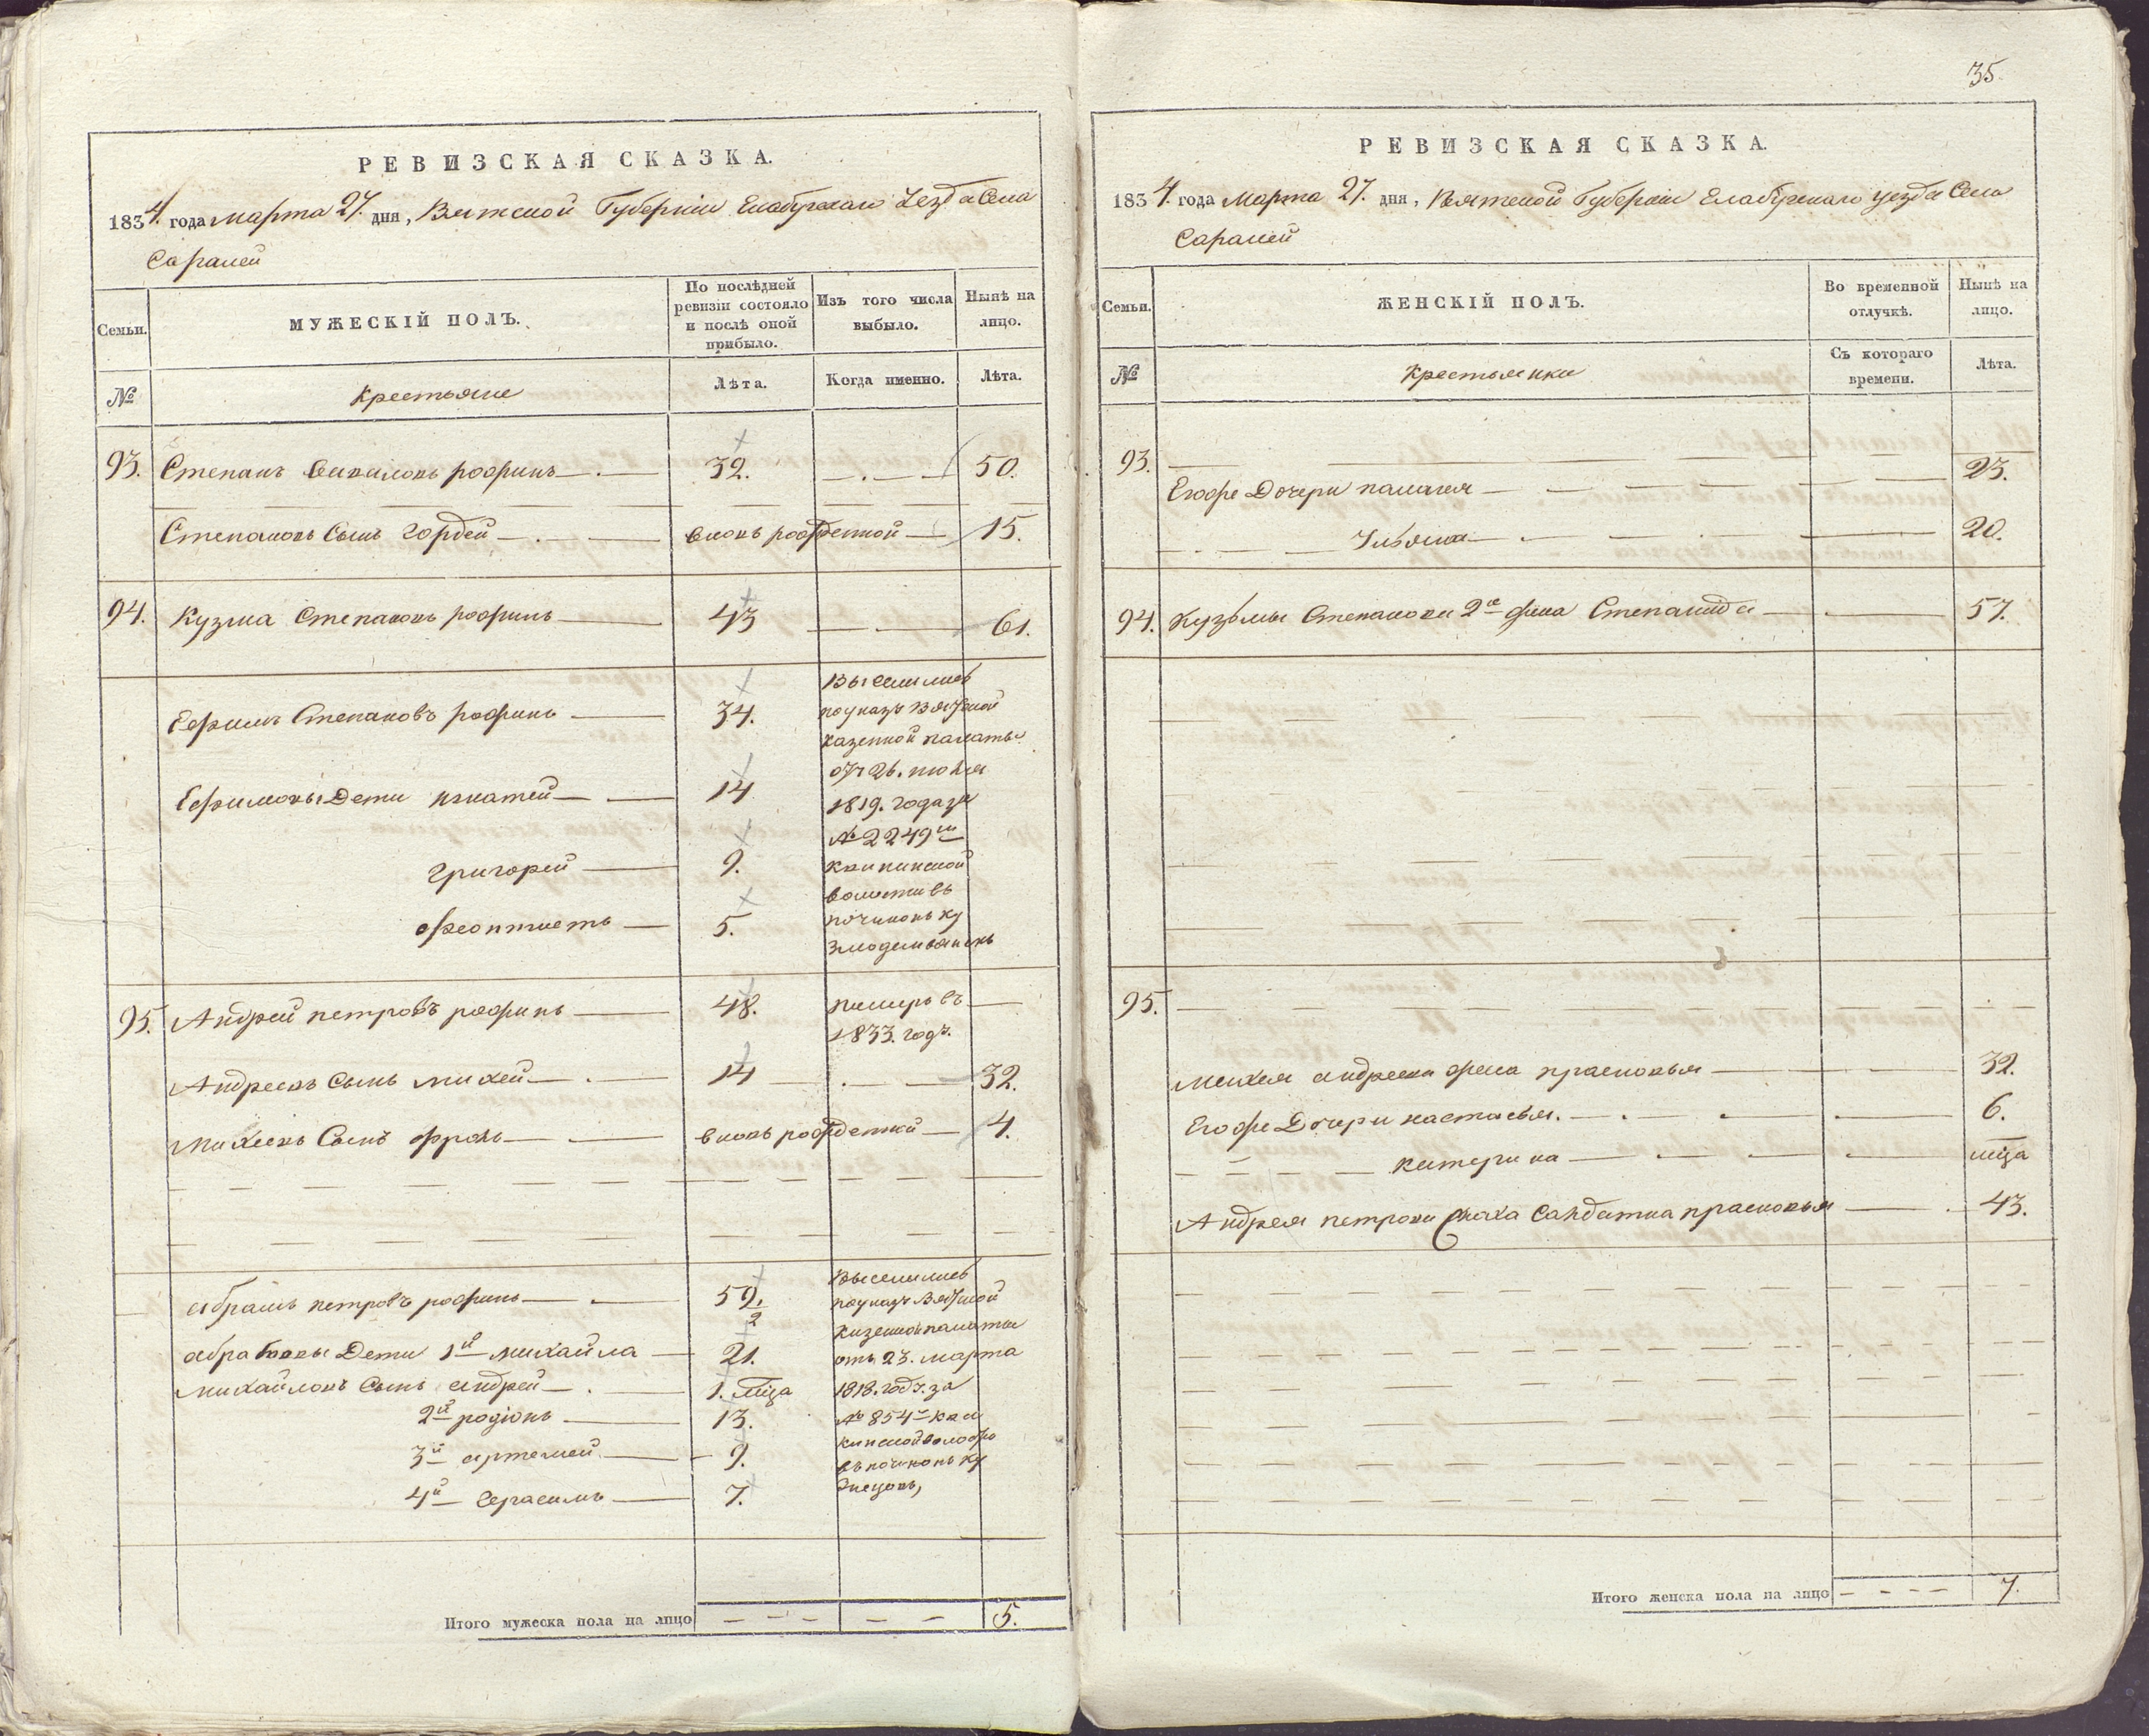 РЕВИЗСКАЯ СКАЗКА.
1834. года марта 27. дня, Вятской Губернiи Елабугскаго Уезда Села
Саралей
Семьи.
МУЖЕСКIЙ ПОЛЪ.
По послѣдней ревизiи состояло и послѣ оной прибыло.
Изъ того числа выбыло.
Нынѣ на лицо.
№
Крестьяне
Лѣта.
Когда именно.
Лѣта.
93. Степанъ 32. 50.
Степановъ Сынъ Гордей вновь рожденной 15.
94. Кузма Степановъ 43 61.
Ефимъ Степановъ 34.
Выселились
по указу Вятской
казенной палаты
отъ 26. июля
1819. года за
№ 2249м
волости въ
починокъ
Ефимовы Дети игнатей 14
григорей 9.
феоктистъ 5.
95. Андрей петровъ 48. умеръ въ
1833. годъ.
Андреевъ Сынъ михей 14 32.
Михеевъ Сынъ фролъ вновь рожденной 4.
абрамъ петровъ 59. 2
Выселились
по указу Вятской
казенной палаты
отъ 23. марта
1818. годъ. за
№ 854м
въ починокъ
абрамовы Дети 1й михайла 21.
михайловъ Сынъ андрей 1. мца
2й родiонъ 13.
3й артемей 9.
4й Герасимъ 7.
Итого мужеска пола на лицо 5.
35.
РЕВИЗСКАЯ СКАЗКА.
1834. года Марта 27. дня, Вятской Губернiи Елабугскаго уезда Села
Саралей
Семьи.
ЖЕНСКIЙ ПОЛЪ.
Во временной отлучкѣ.
Нынѣ на лицо.
№
Крестьянки
Съ котораго времени.
Лѣта.
93.
Егоже Дочери палагея 23.
Ульяна 20.
94. Кузьмы Степанова 2я жена Степанида 57.
95.
михея андреева жена прасковья 32.
Егоже Дочери настасья. 6.
катерина мца
Андрея петрова Сноха Салдатка прасковья 43.
Итого женска пола на лицо 7.